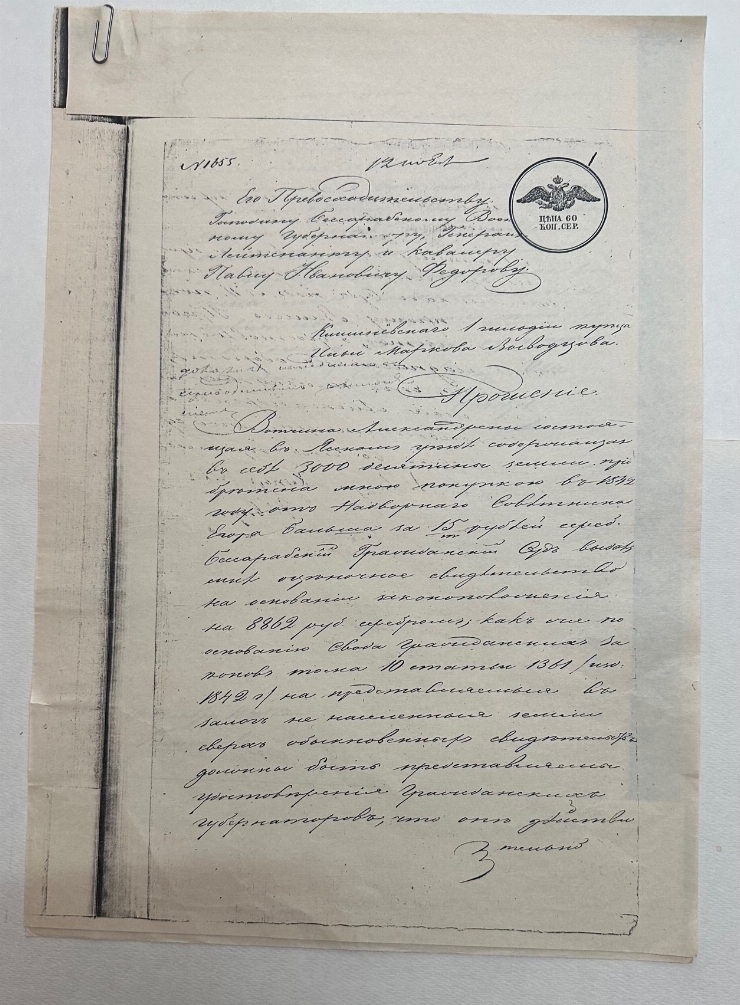 N 1655.
12
ЦѢНА 60
КОП. СЕР.
Его Превосходительству
Господину Бессарабскому Воен
ному Губернатору, Генералъ
Лейтенанту и Кавалеру
Павлу Ивановичу Федорову
Кишиневскаго 1 гильдіи купца
Ильи Маркова
Прошеніе.
Вотчина Александрены состоя-
щая въ Яскомъ уѣздѣ содержащая
въ себѣ 3000 десятинъ земли прі
обрѣтена мною покупкою въ 1842
году отъ Надворнаго Совѣтника
Егора Бальша за 15/т рублей сереб.
Бессарабскій Гражданскій Судъ выдалъ
мнѣ оцѣночное свидѣтельство
на основаніи законоположенія
на 8862 руб. серебромъ; какъ же по
основанію Свода Гражданскихъ За
коновъ тома 10 статьи 1361 /изд.
1842 г/ на представляемыя въ
залогъ не населенныя земли
сверхъ обыкновенныхъ свидѣтельствъ
должны быть представляемы
удостовѣренія Гражданскихъ
Губернаторовъ, что онѣ дѣйстви
тельно